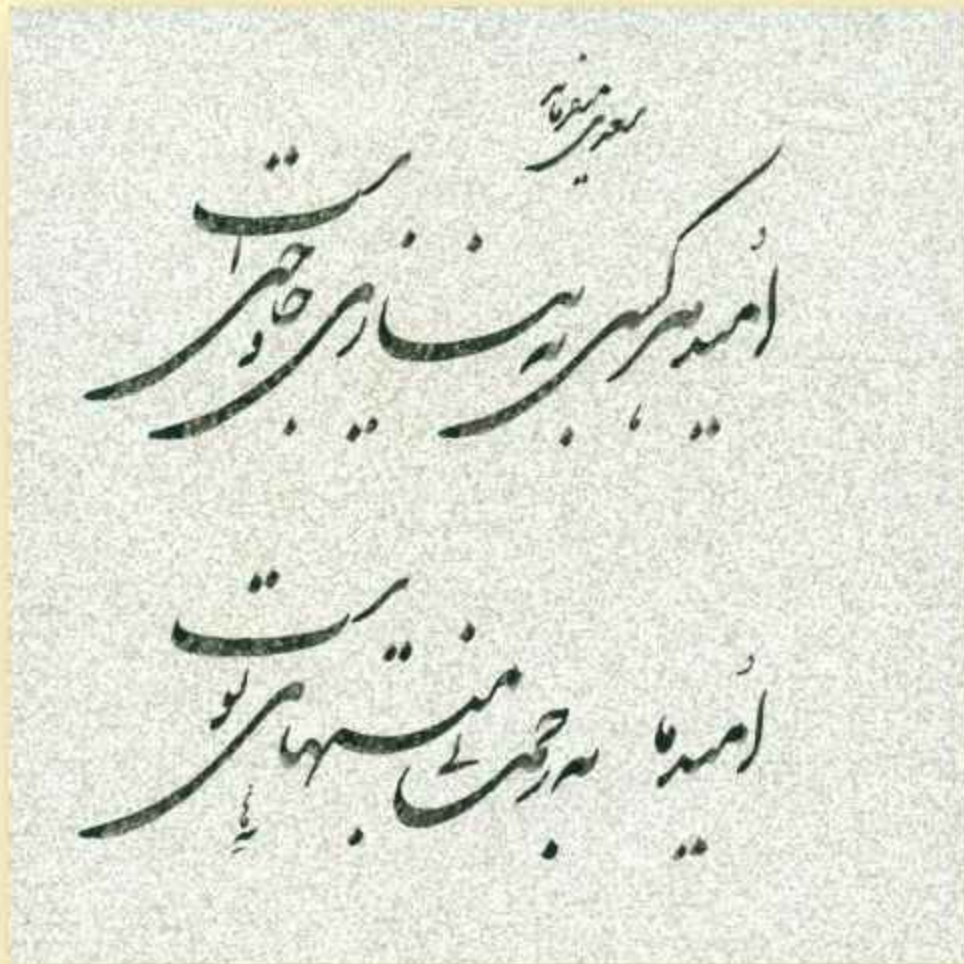 سعدی میفرماید
اُمید هر کسی به نیازی و حاجتی است
اُمید ما به رحمت بی منتهای توست